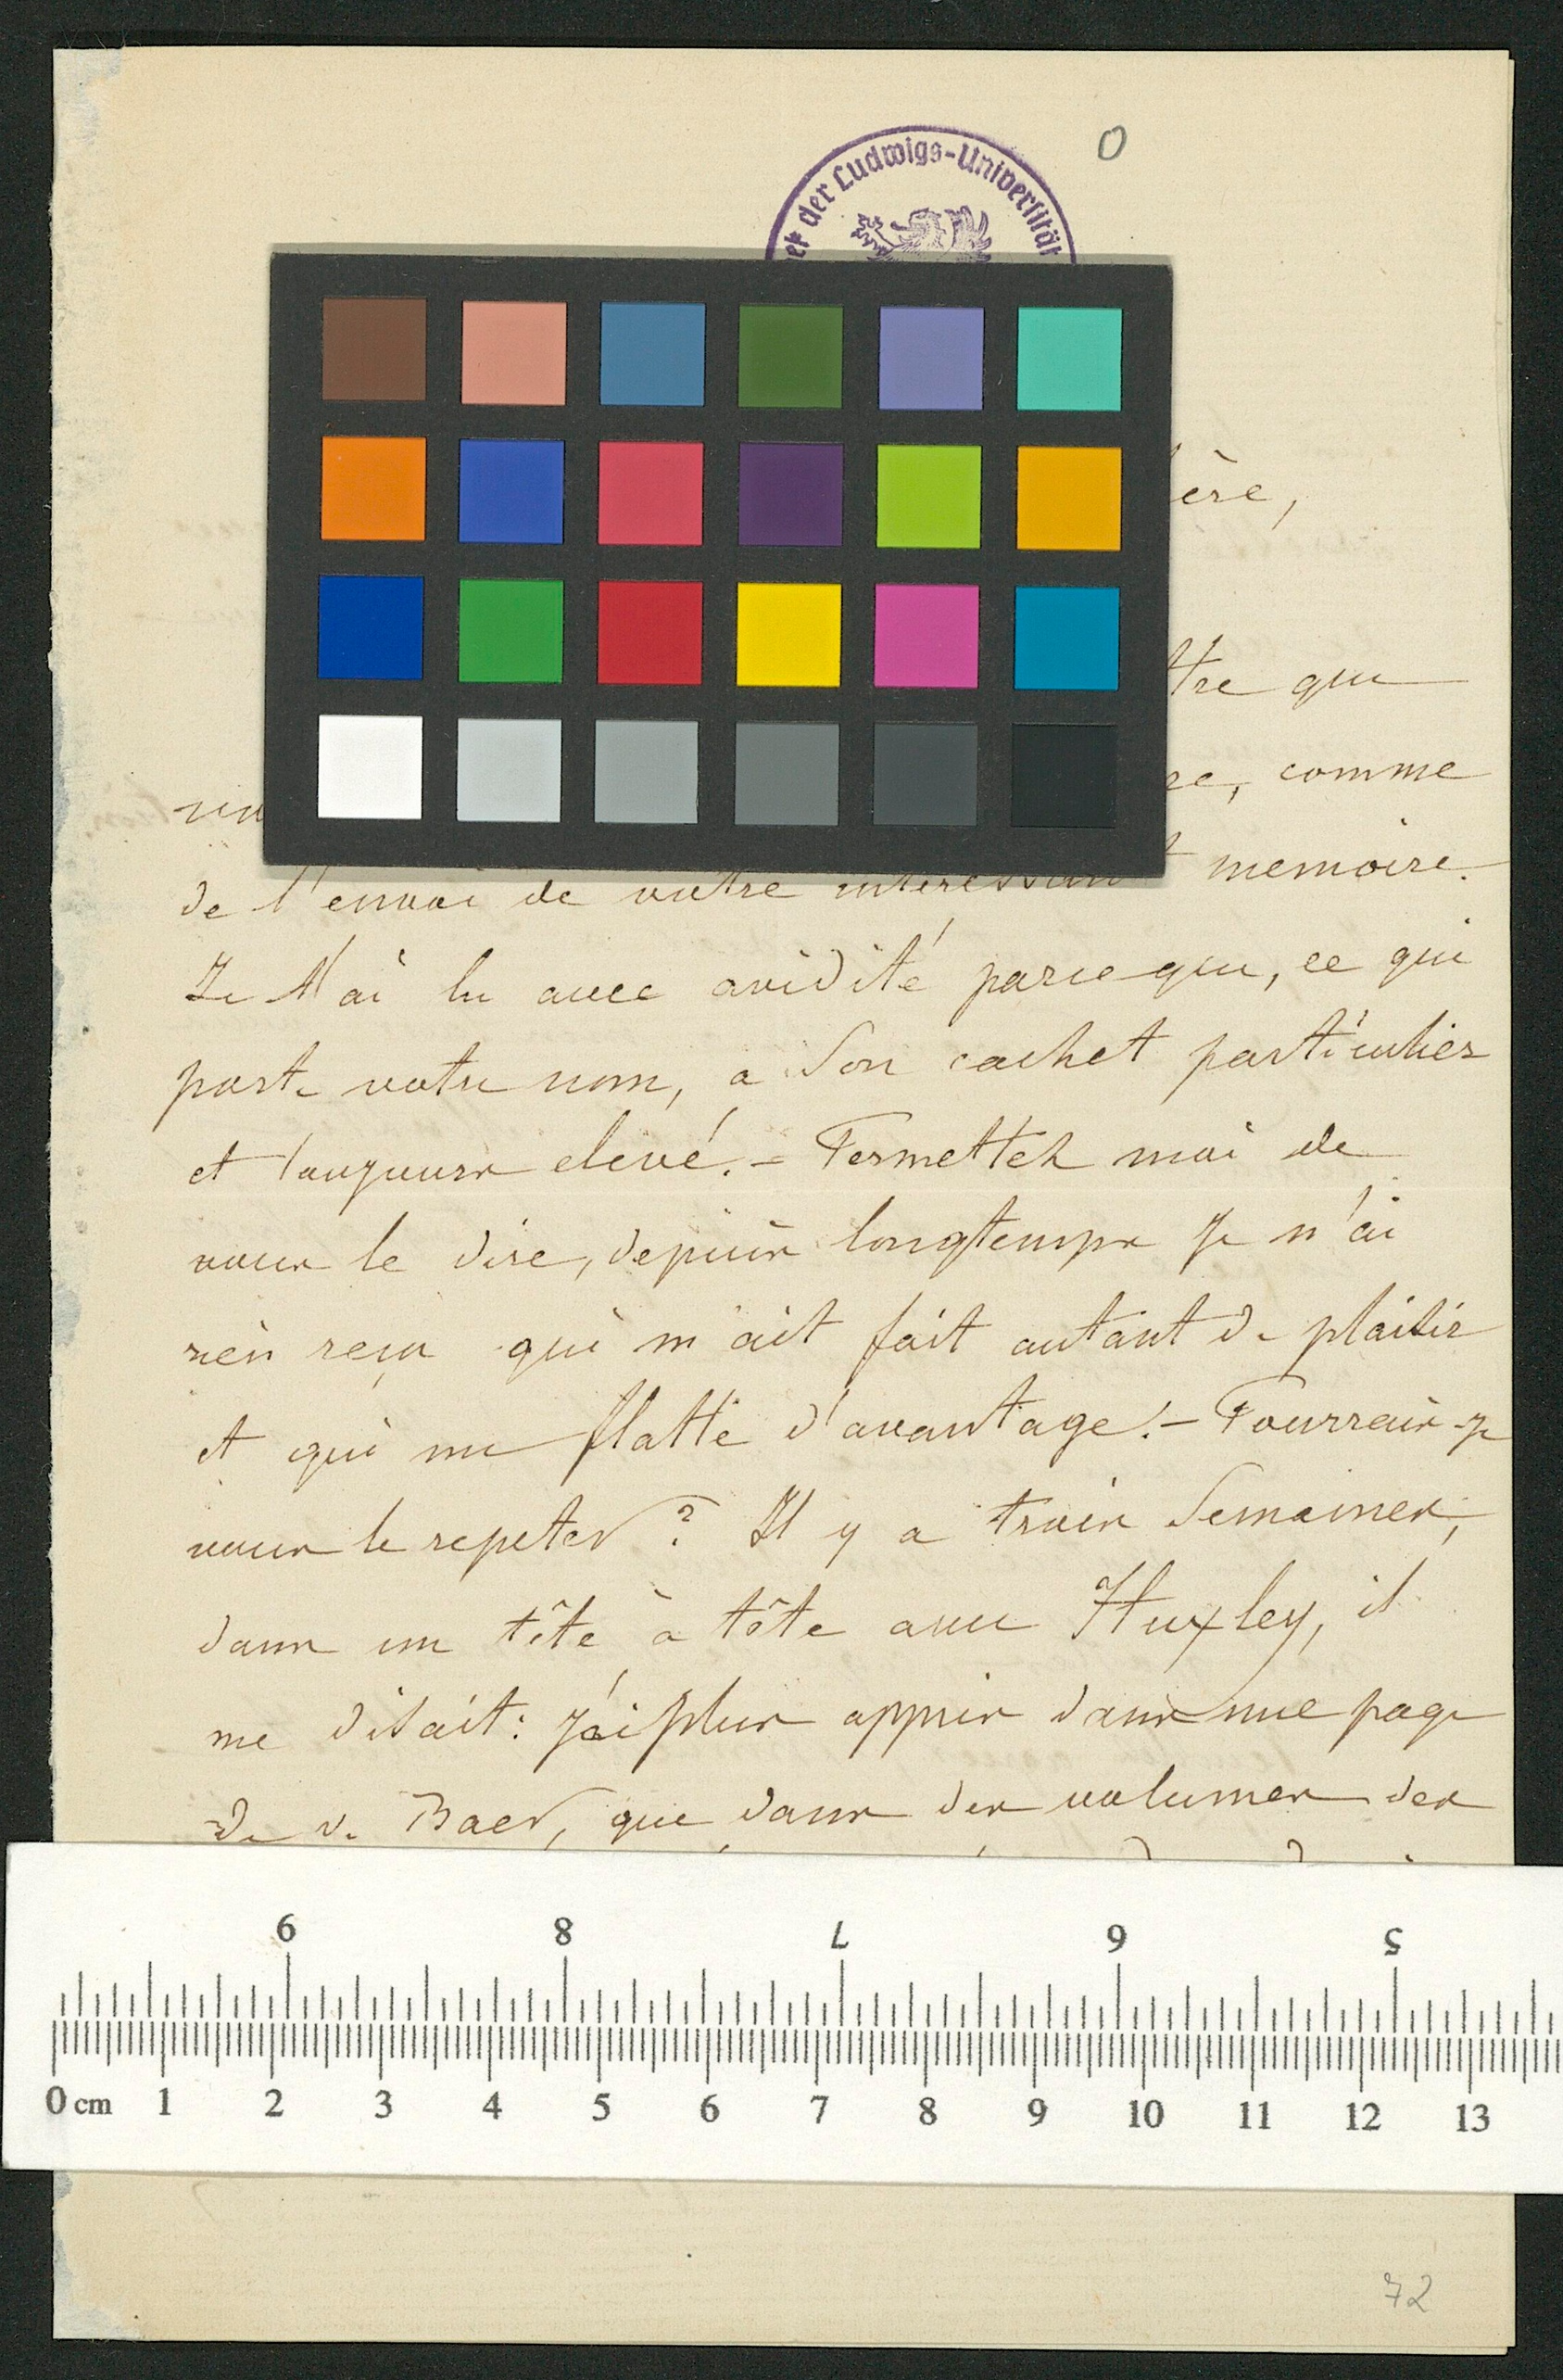 0
der Ludwigs-Universität
ère,
que
comme
de l'envoi de votre interessant memoire.
Je l'ai lu avec avidité parceque, ce qui
porte votre nom, a son cachet particulier
et toujours elevé. - Permettez moi de
vous le dire, depuis longtemps je n'ai
rien reçu qui m'ait fait autant de plaisir
et qui me flatte d'avantage. - Pourrais-je
vous le repeter? Il y a trois semaines,
dans un tête à tête avec Huxley, il
me disait: j'ai plus appris dans une page
de v. Baer, que dans des volumes des
9 8 7 6 5
0 cm 1 2 3 4 5 6 7 8 9 10 11 12 13
72